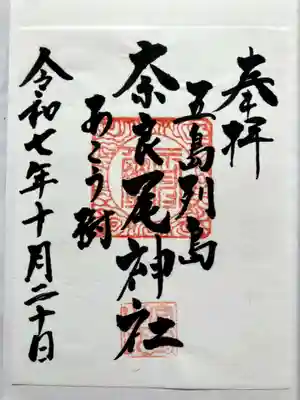 奉拝
五島列島
奈良尾神社
あこう樹
令和七年十月二十日